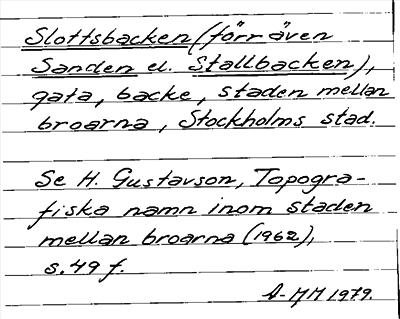 Slottsbacken (förr även
Sanden el. Stallbacken),
gata, backe, staden mellan
broarna, Stockholms stad.
Se H. Gustavson, Topogra-
fiska namn inom staden
mellan broarna (1962),
s. 49 f.
A-MM 1979.